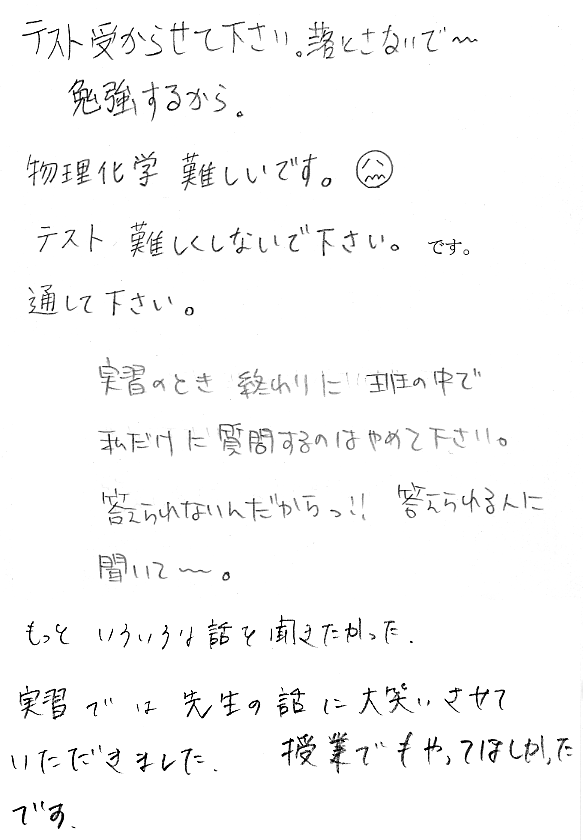 テスト受からせて下さい。落とさないで〜
勉強するから。
物理化学 難しいです。
テスト 難しくしないで下さい。 です。
通して下さい。
実習のとき 終わりに 班の中で
私だけに質問するのはやめて下さい。
答えられないんだからっ!! 答えられる人に
聞いて〜。
もっと いろいろな話を聞きたかった.
実習では 先生の話に大笑いさせて
いただきました. 授業でもやってほしかった
です.